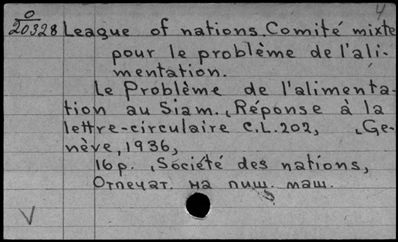 4
O
20328 League of nations. Comité mixte
pour le problème de l'ali-
mentation.
Le Problème de l'alimenta-
tion au Siam., Réponse à la
lettre-circulaire C.L.202, , Ge-
nève, 1936,
16 p. , Société des nations,
Отпечат. на пиш. маш.
V